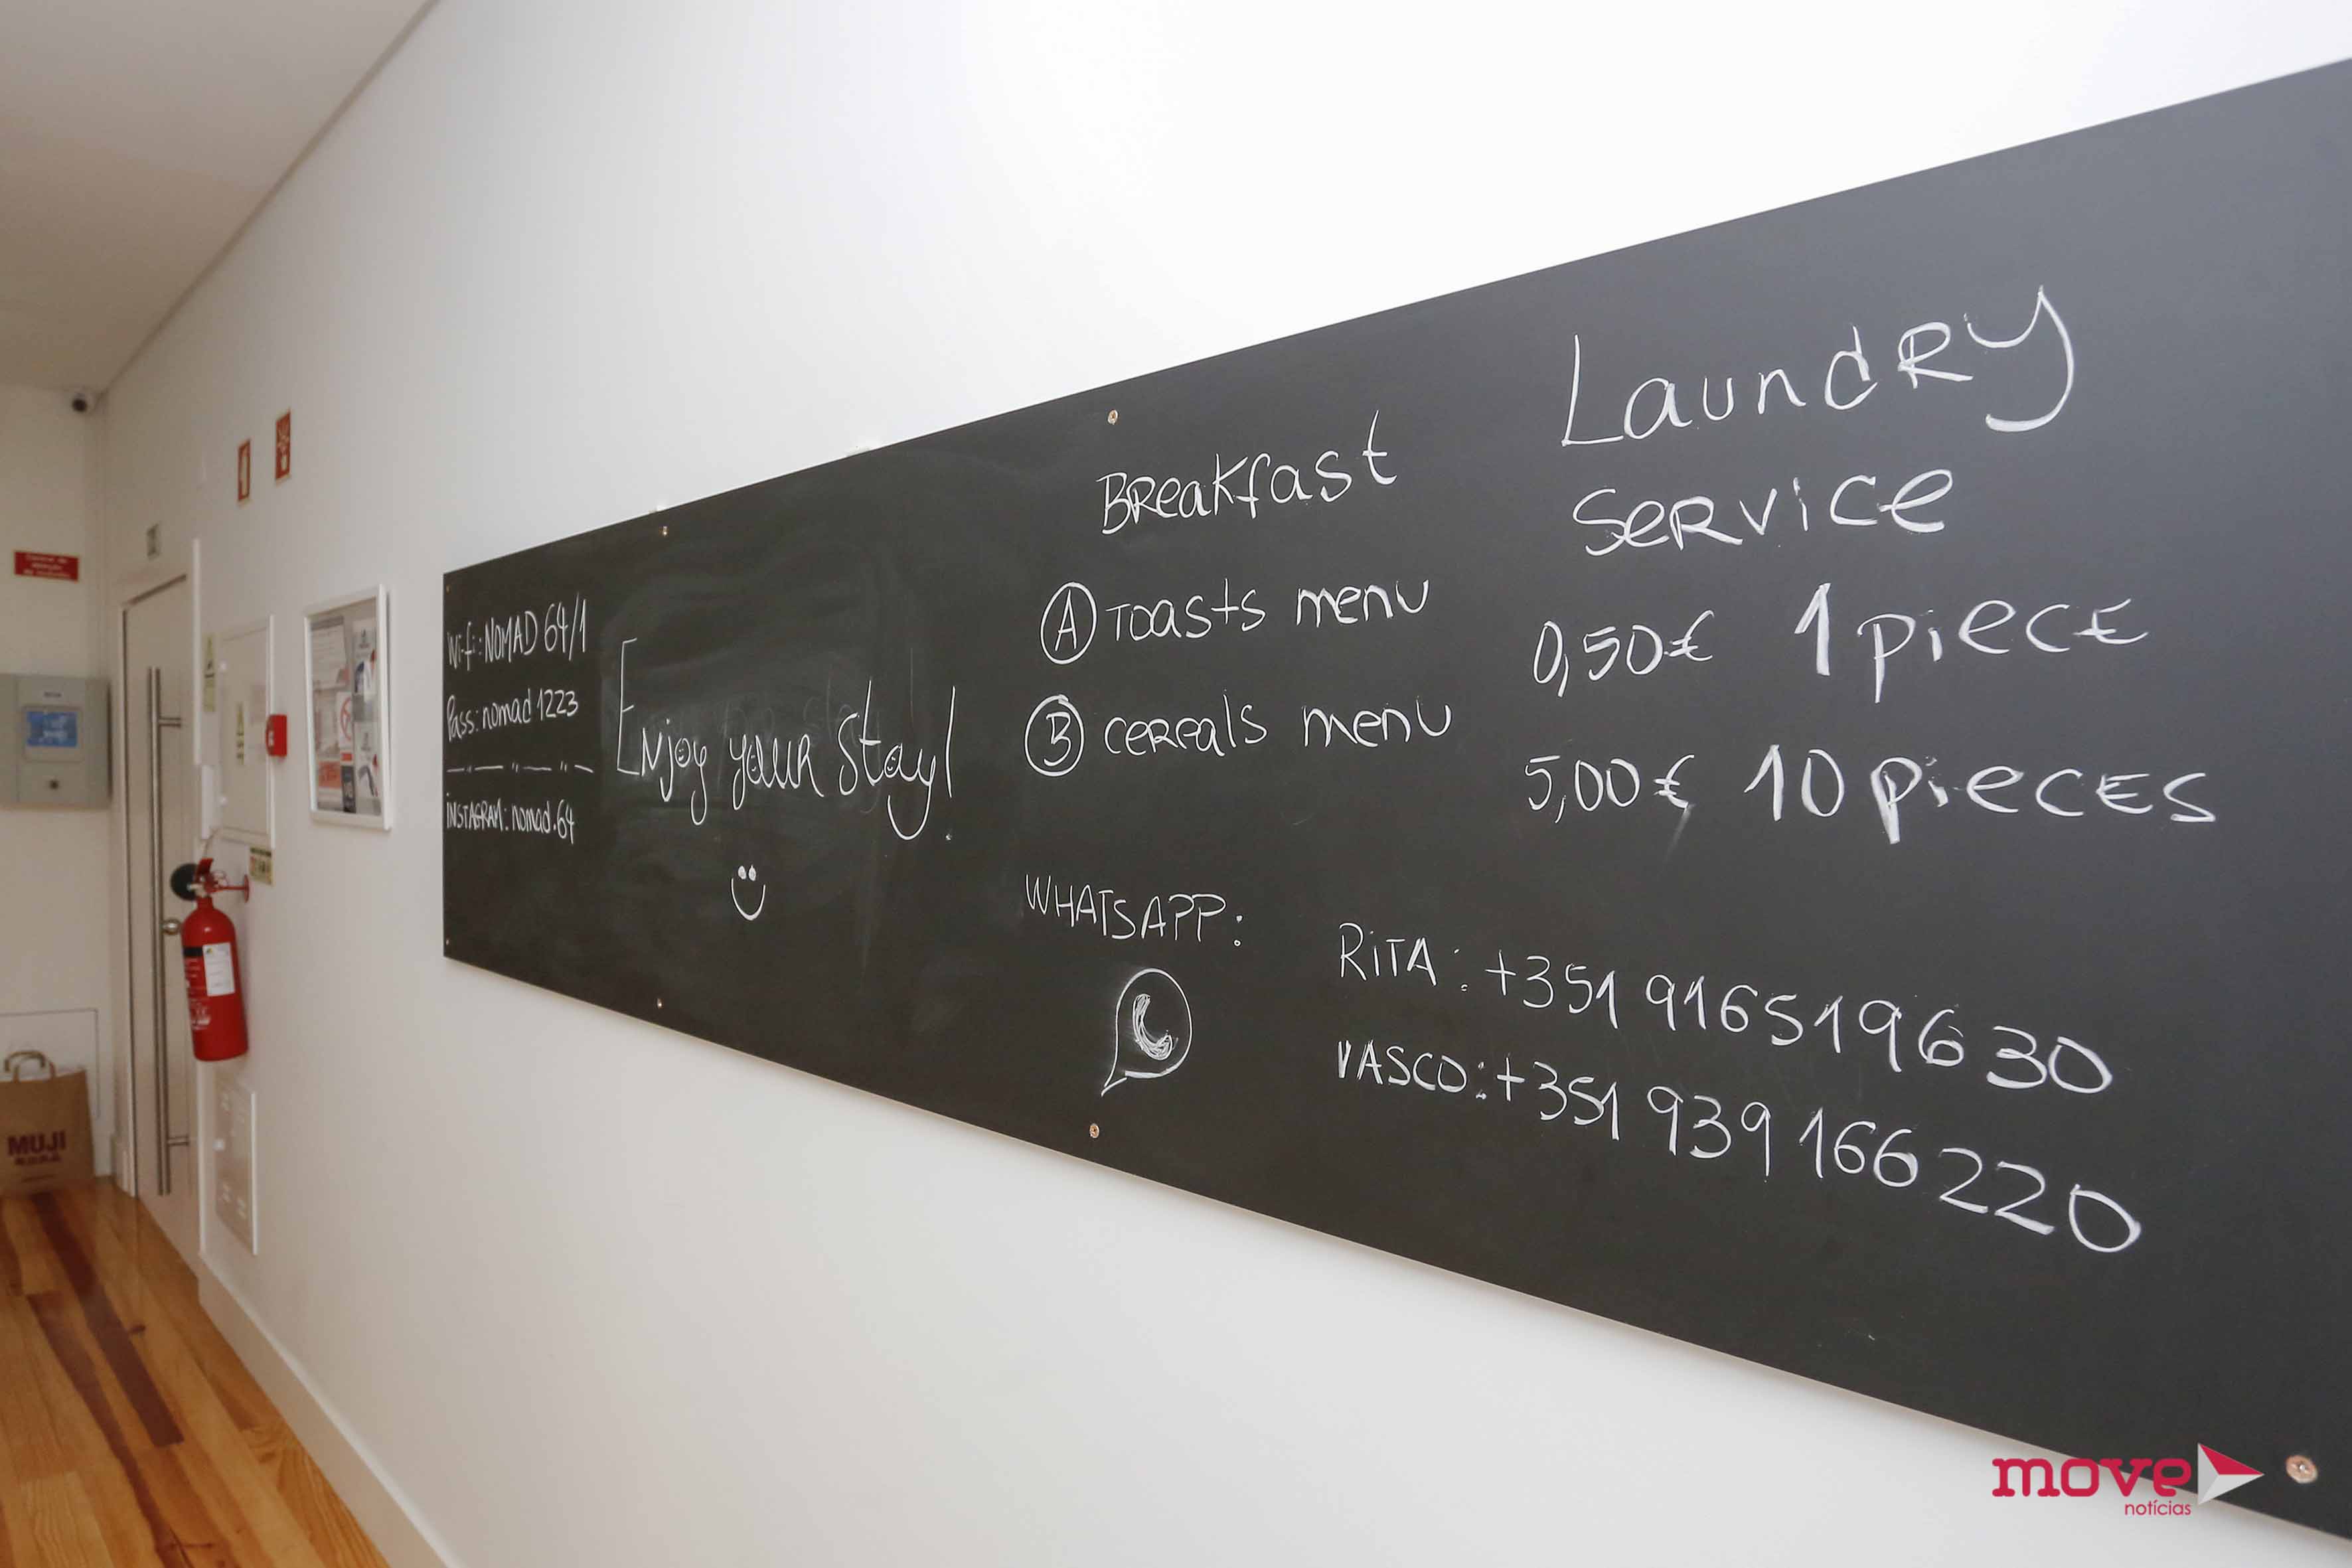 Wifi: NOMAD 64/1
Pass: nomad1223
INSTAGRAM: nomad.64
Enjoy your stay!
Breakfast
A Toasts menu
B cereals menu
Laundry
Service
0,50€ 1 piece
5,00€ 10 pieces
WHATSAPP:
RiTA: +351 916519630
VASCO: +351 939 166 220
MUJI
move
notícias